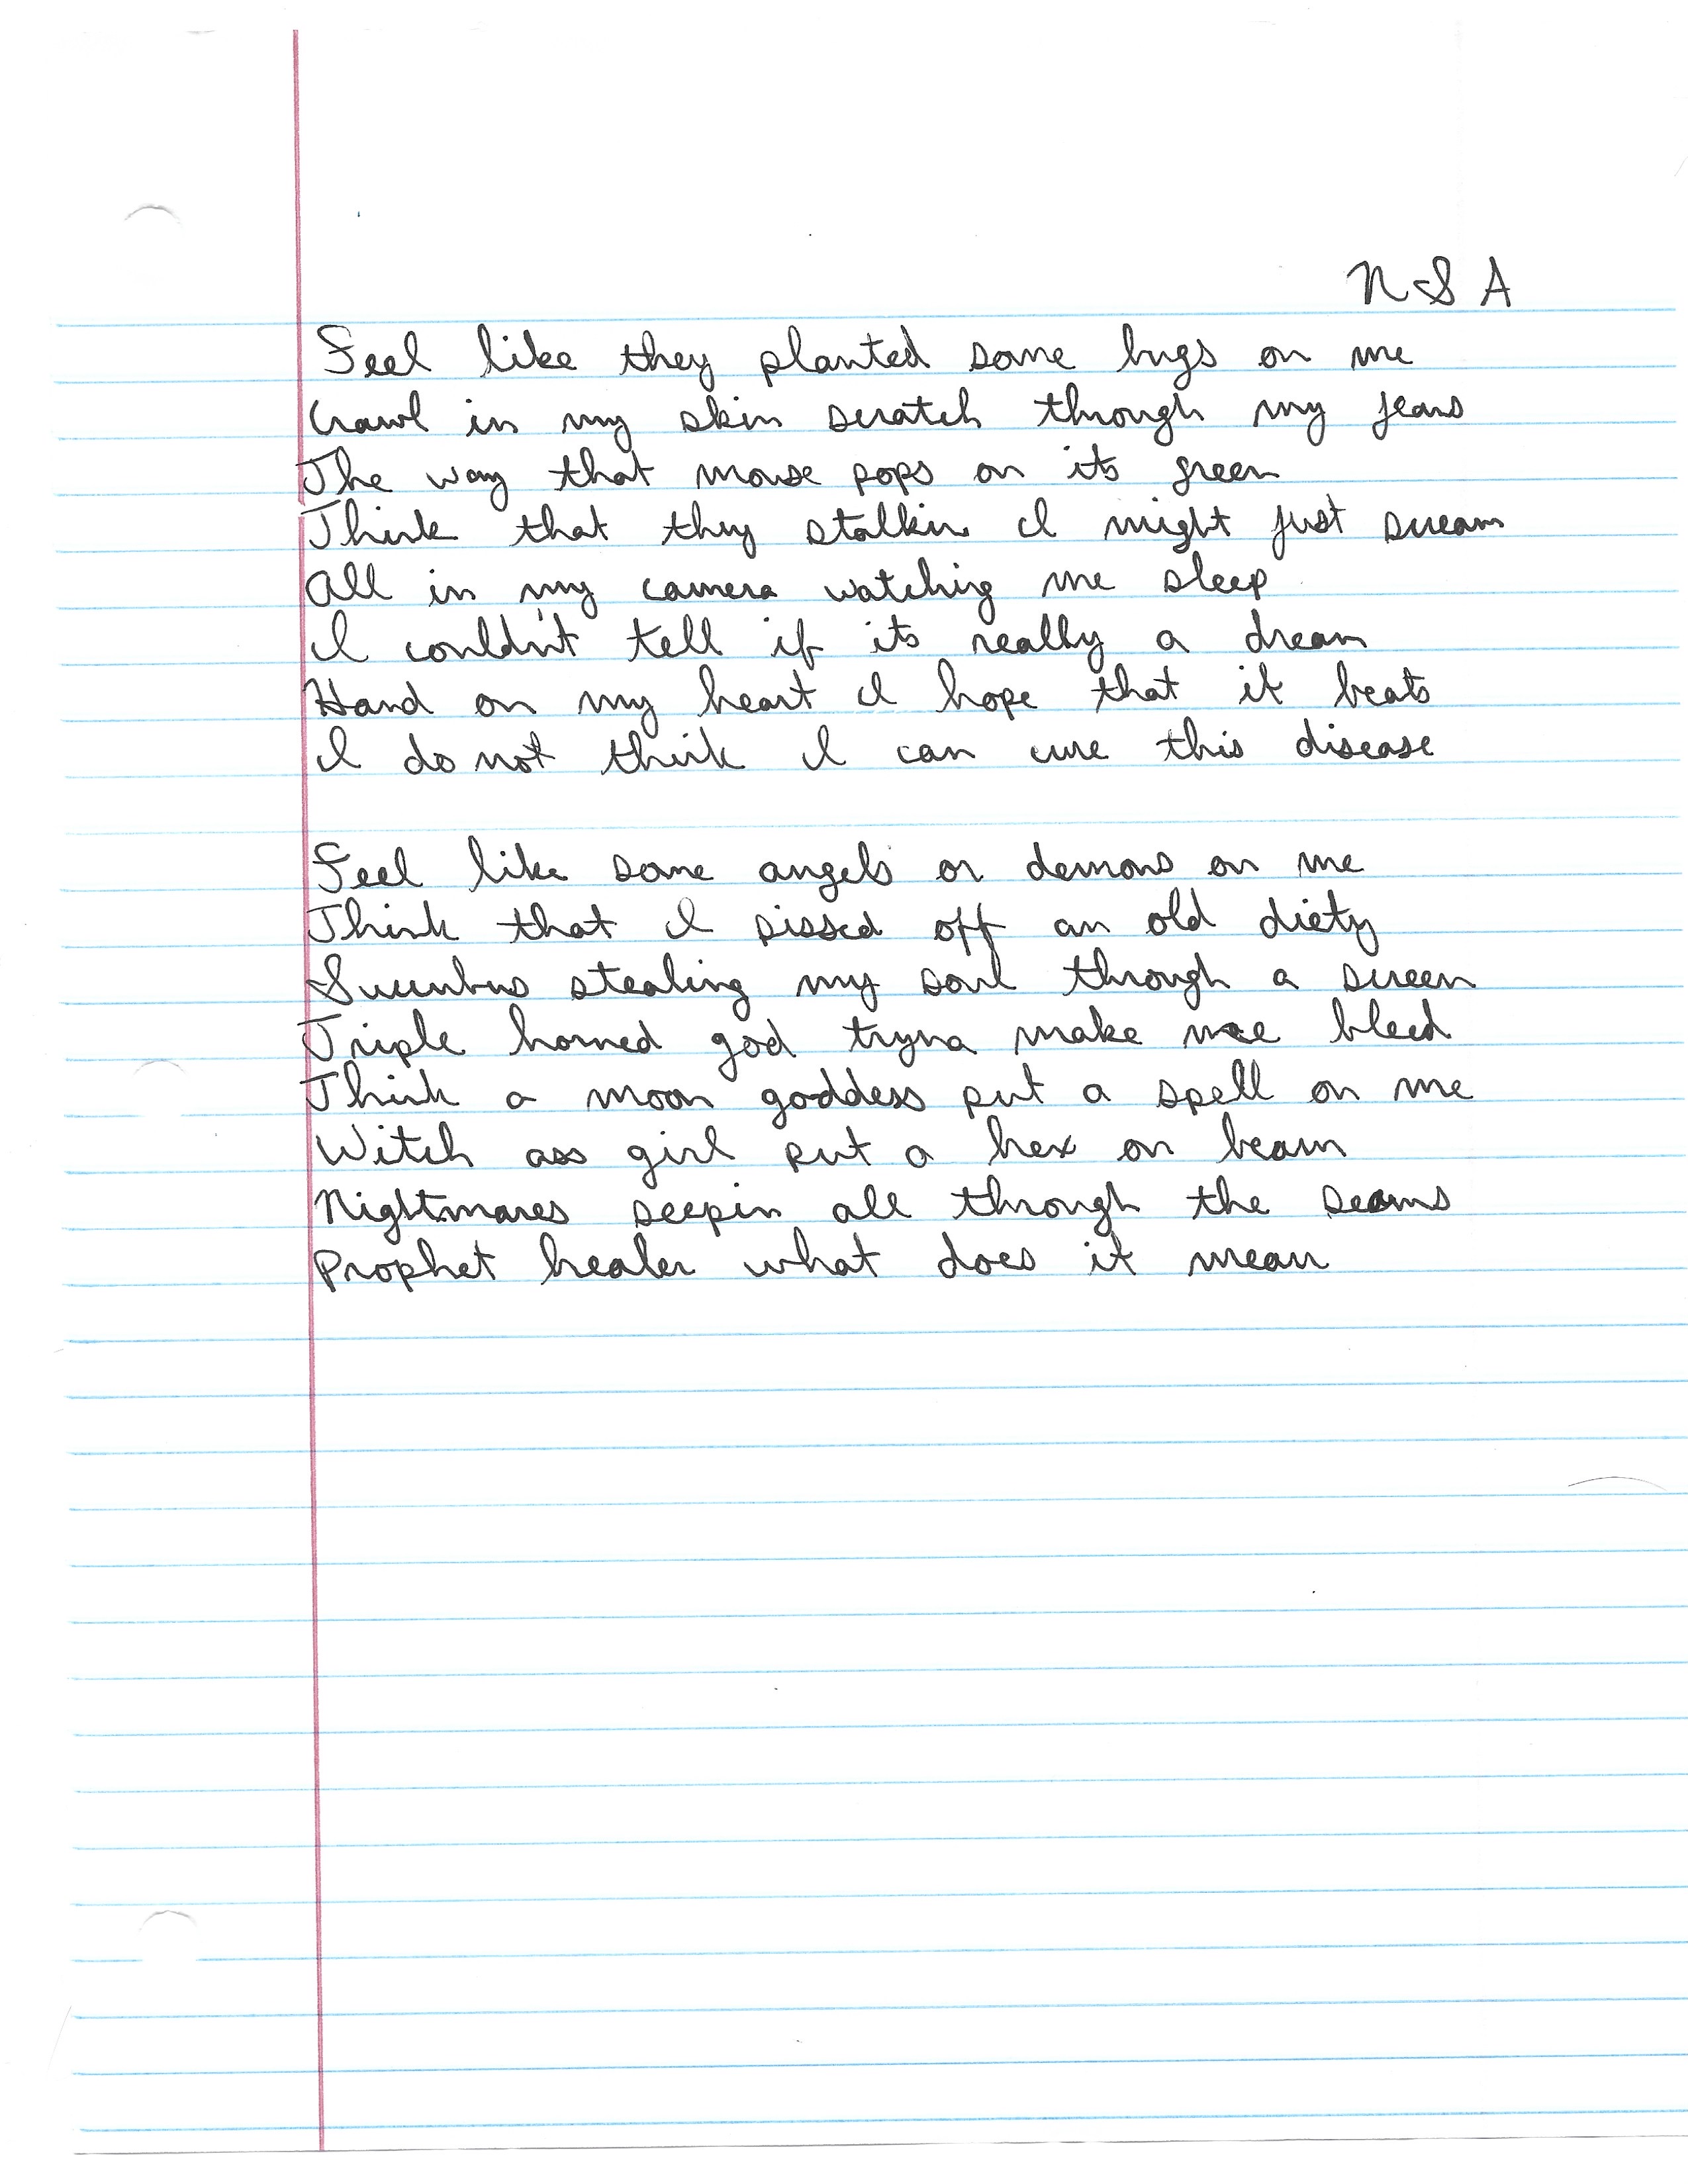 N S A
Feel like they planted some bugs on me
Crawl in my skin scratch through my jeans
The way that mouse pops on its green
Think that they stalkin I might just scream
All in my camera watching me sleep
I couldn't tell if its really a dream
Hand on my heart I hope that it beats
I do not think I can cure this disease
Feel like some angels or demons on me
Think that I pissed off an old diety
Succubus stealing my soul through a screen
Triple horned god tryna make me bleed
Think a moon goddess put a spell on me
Witch ass girl put a hex on beam
Nightmares seepin all through the seams
Prophet healer what does it mean